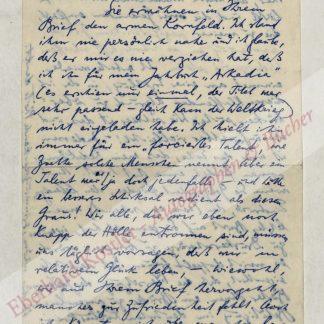 Sie erwähnen in Ihrem
Brief den armen Kornfeld. Ich stand
ihm nie persönlich nahe und ich glaube,
daß er mir es nie verziehen hat, daß
ich ihn für mein Jahrbuch „Arkadia"
(es erschien nur einmal, der Titel war
sehr passend – gleich kam der Weltkrieg)
nicht eingeladen habe. Ich hielt ihn
immer für ein „forciertes Talent", wie
Goethe solche Menschen nennt. Aber ein
Talent war's ja doch jedenfalls – und hätte
ein besseres Schicksal verdient als diesen
Graus! Wir alle, die wir eben noch
knapp der Hölle entronnen sind, müssen
uns täglich vorsagen, daß wir in
relativem Glück leben, – wiewohl,
wie aus Ihrem Brief hervorgeht,
manches zur Zufriedenheit fehlt.
Eberhard Köstler Autographen & Bücher